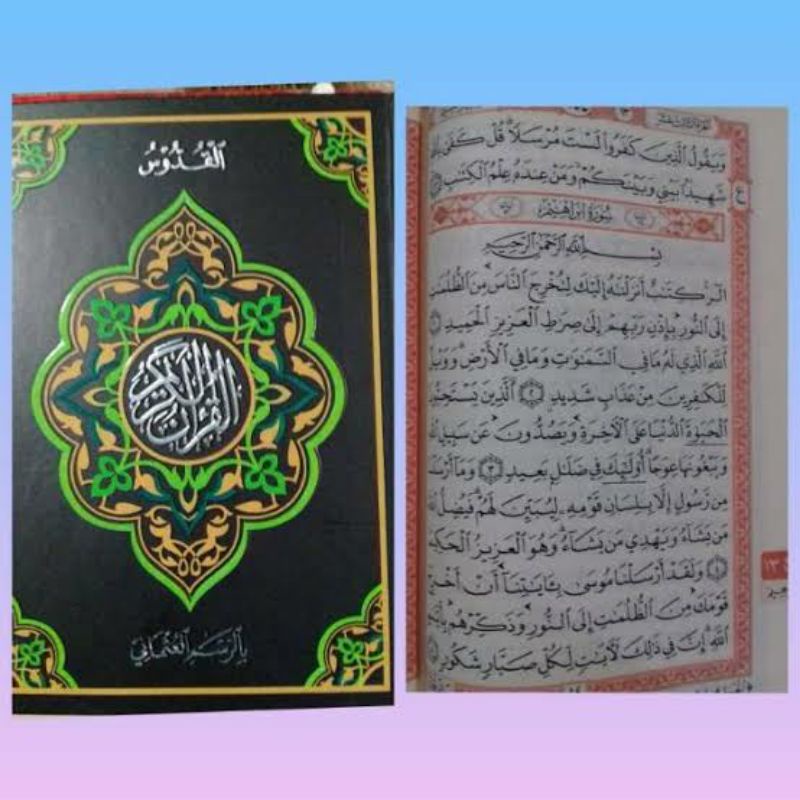 القدوس
القرآن الكريم
بالرسم العثماني
وَيَقُولُ الَّذِينَ كَفَرُوا لَسْتَ مُرْسَلًا قُلْ كَفَىٰ
شَهِيدًا بَيْنِي وَبَيْنَكُمْ وَمَنْ عِنْدَهُ عِلْمُ الْكِتَٰبِ
سُورَةُ إِبْرَاهِيمَ
بِسْمِ اللَّهِ الرَّحْمَٰنِ الرَّحِيمِ
الٓر كِتَٰبٌ أَنْزَلْنَٰهُ إِلَيْكَ لِتُخْرِجَ النَّاسَ مِنَ الظُّلُمَٰتِ
إِلَى النُّورِ بِإِذْنِ رَبِّهِمْ إِلَىٰ صِرَٰطِ الْعَزِيزِ الْحَمِيدِ ١
اللَّهِ الَّذِي لَهُ مَا فِي السَّمَٰوَٰتِ وَمَا فِي الْأَرْضِ
لِلْكَٰفِرِينَ مِنْ عَذَابٍ شَدِيدٍ ٢ الَّذِينَ
الْحَيَوٰةَ الدُّنْيَا عَلَى الْآخِرَةِ وَيَصُدُّونَ عَنْ سَبِيلِ
وَيَبْغُونَهَا عِوَجًا أُولَٰئِكَ فِي ضَلَٰلٍ بَعِيدٍ ٣ وَمَا
مِنْ رَسُولٍ إِلَّا بِلِسَانِ قَوْمِهِ لِيُبَيِّنَ لَهُمْ فَيُضِلُّ
مَنْ يَشَاءُ وَيَهْدِي مَنْ يَشَاءُ وَهُوَ الْعَزِيزُ
وَلَقَدْ أَرْسَلْنَا مُوسَىٰ بِـَٔايَٰتِنَا أَنْ
قَوْمَكَ مِنَ الظُّلُمَٰتِ إِلَى النُّورِ وَذَكِّرْهُمْ
اللَّهِ إِنَّ فِي ذَٰلِكَ لَآيَٰتٍ لِكُلِّ صَبَّارٍ شَكُورٍ